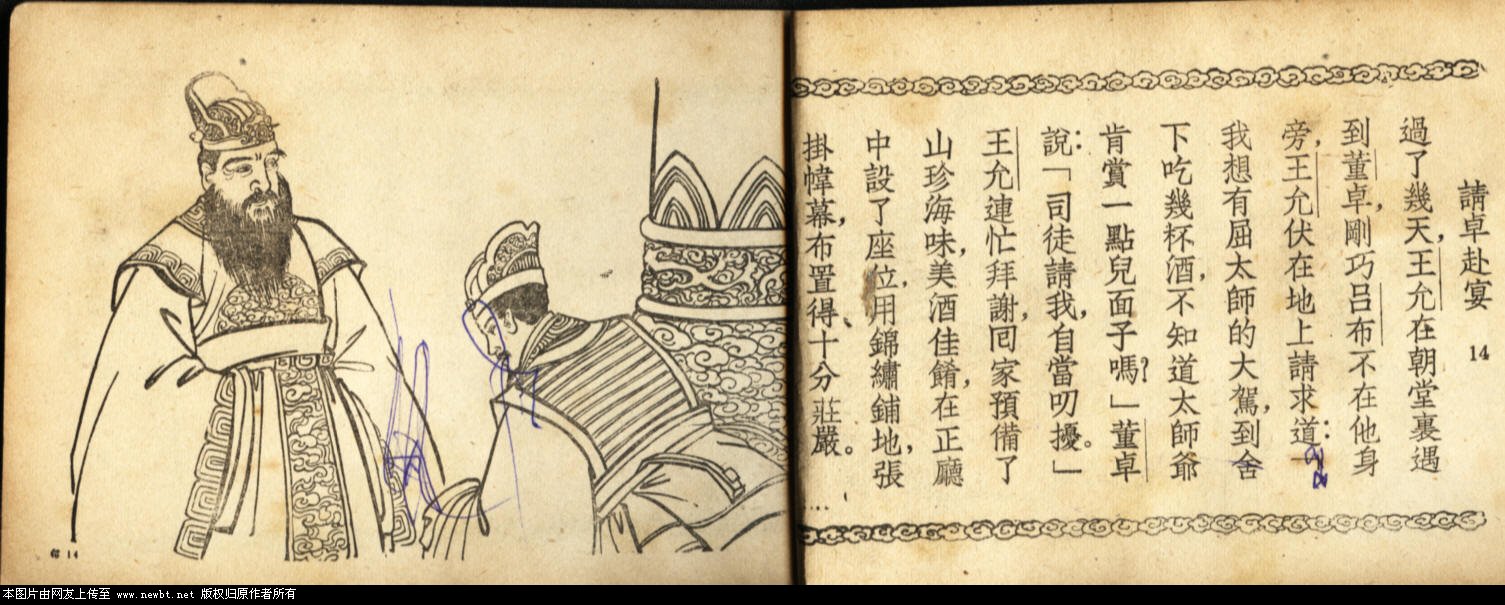 請卓赴宴 14
過了幾天,王允在朝堂裏遇
到董卓,剛巧呂布不在他身
旁,王允伏在地上請求道:
我想有屈太師的大駕,到舍
下吃幾杯酒,不知道太師爺
肯賞一點兒面子嗎?」董卓
說:「司徒請我,自當叨擾。」
王允連忙拜謝,回家預備了
山珍海味,美酒佳餚,在正廳
中設了座位,用錦繡鋪地,張
掛幃幕,布置得、十分莊嚴。
……
14
本图片由网友上传至 www.newbt.net 版权归原作者所有